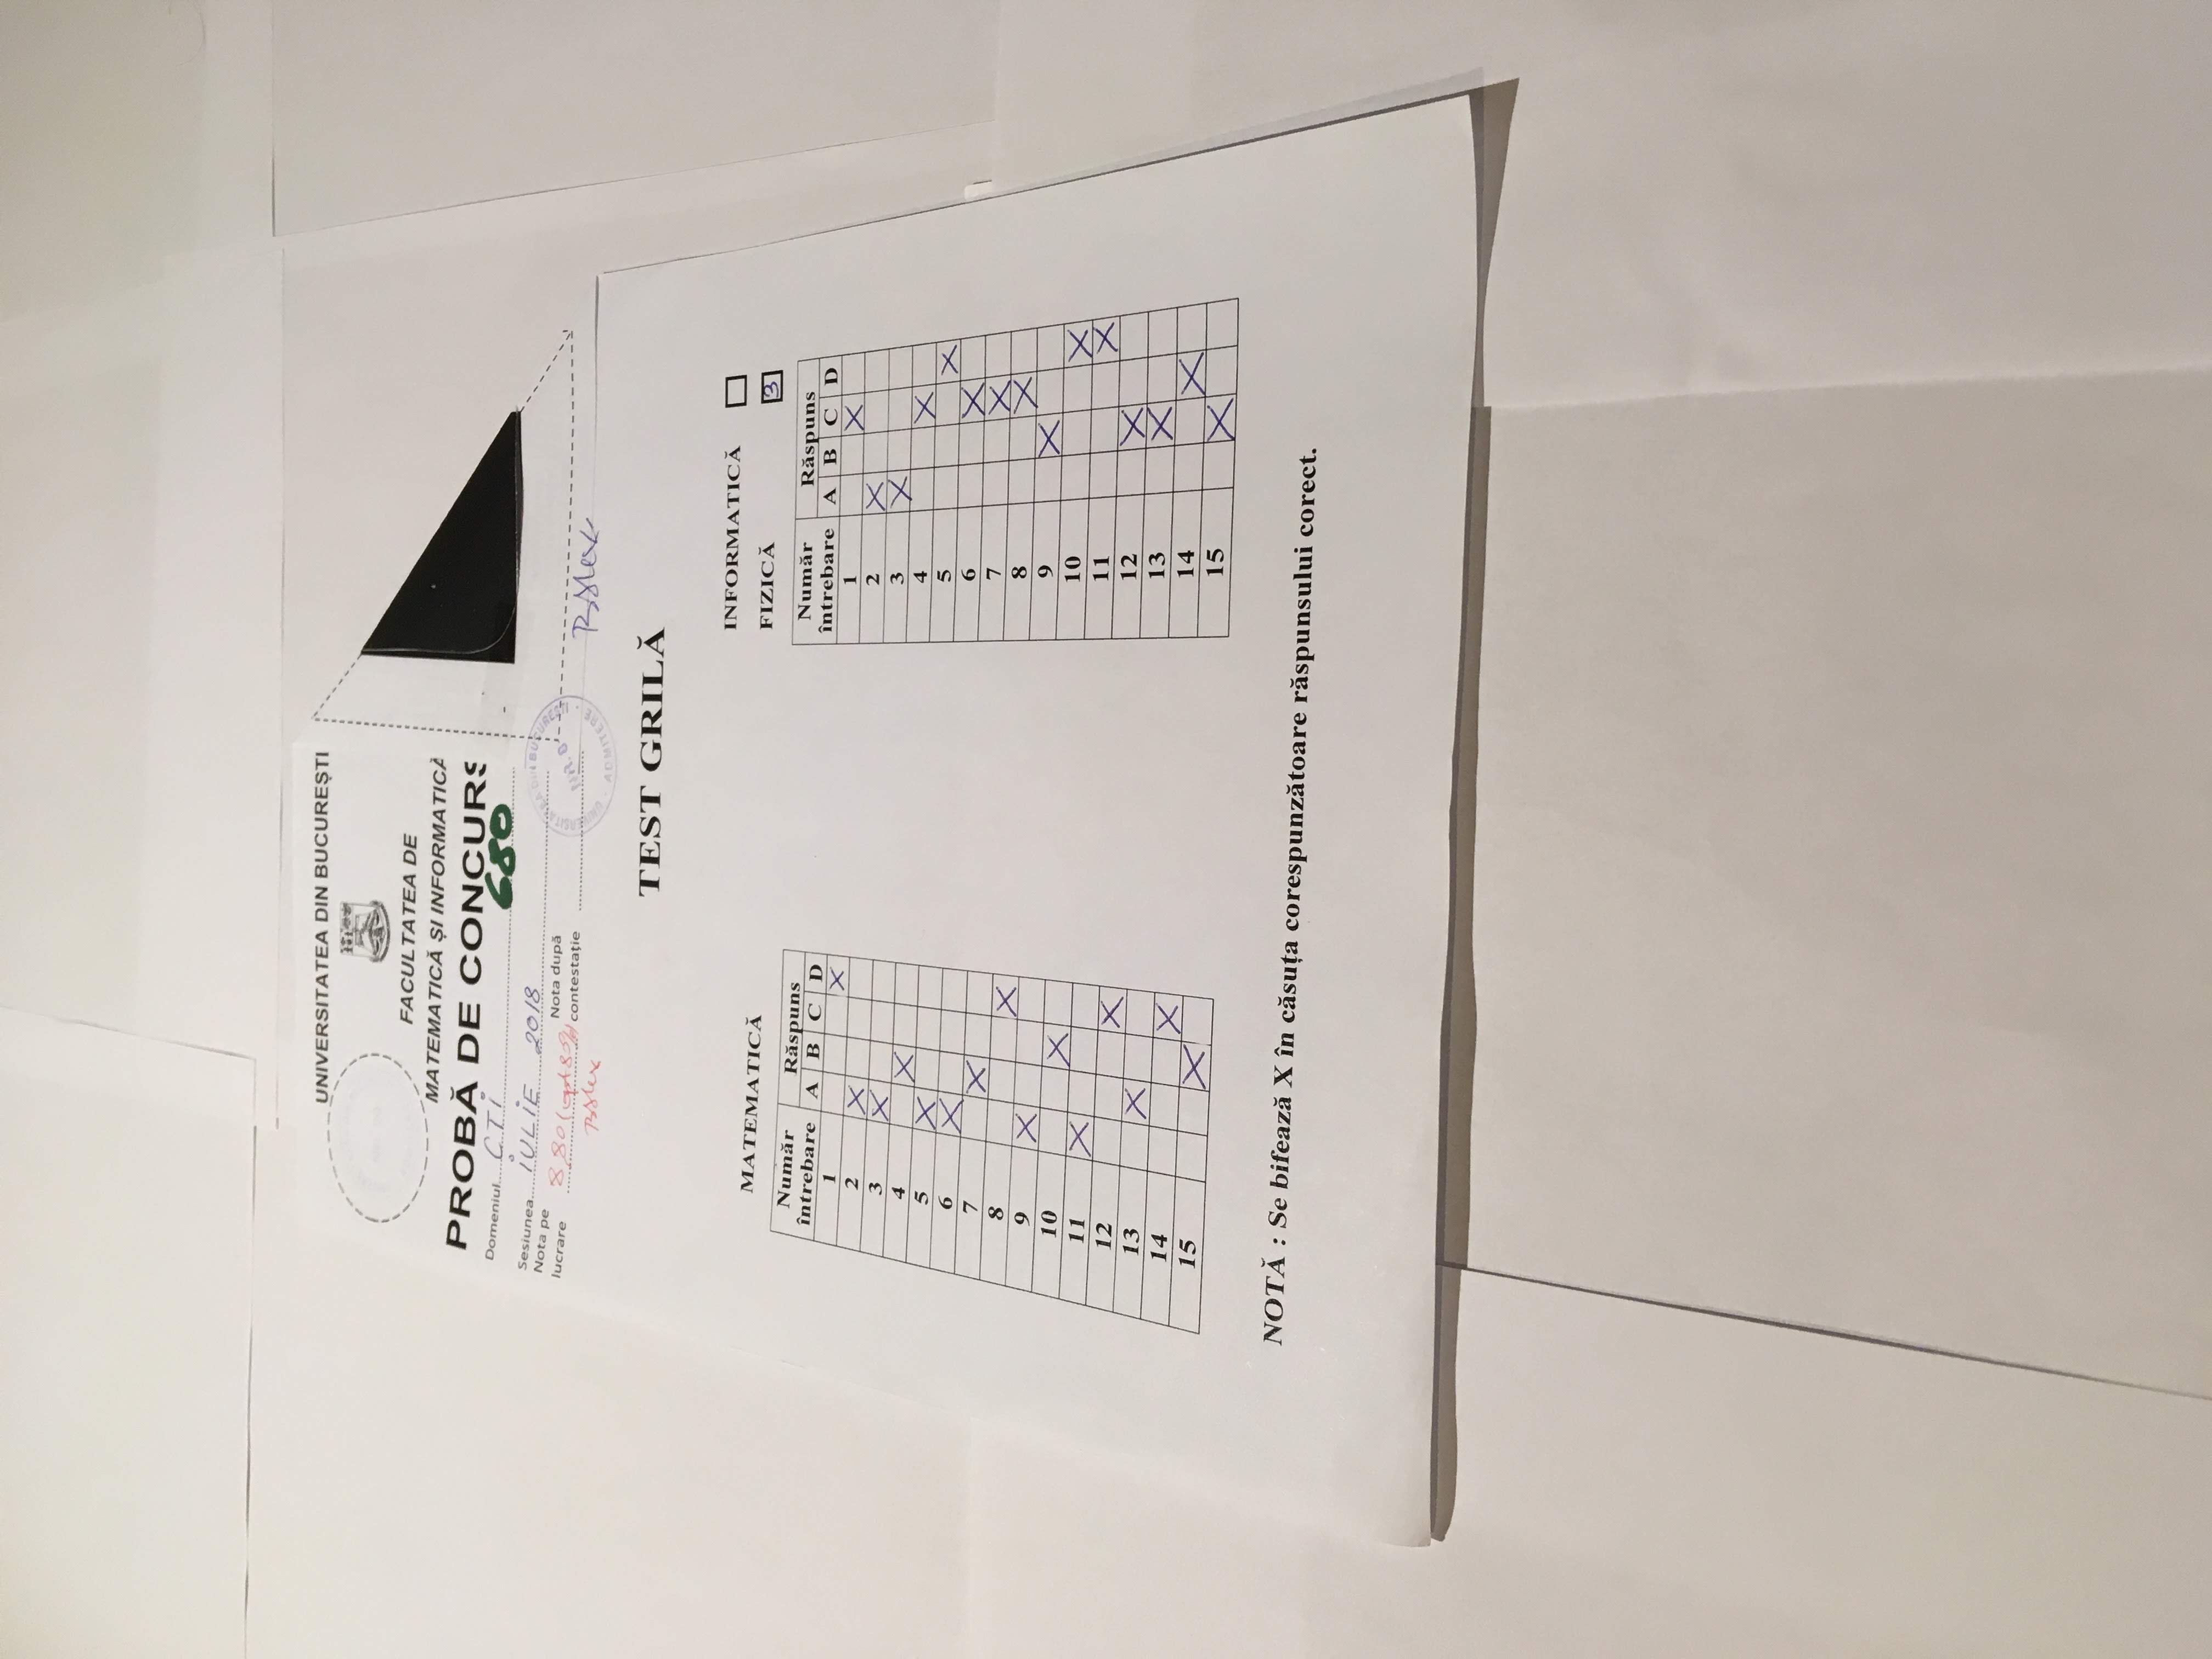 UNIVERSITATEA DIN BUCUREȘTI
FACULTATEA DE
MATEMATICĂ ȘI INFORMATICĂ
PROBĂ DE CONCURS
Domeniul CTI 680
Sesiunea IULIE 2018
Nota pe lucrare 8,80 (opt 80%)
Nota după contestație
UNIVERSITATEA DIN BUCUREȘTI
ADMITERE
TEST GRILĂ
MATEMATICĂ
Număr întrebare Răspuns
A B C D
1 X
2 X
3 X
4 X
5 X
6 X
7 X
8 X
9 X
10 X
11 X
12 X
13 X
14 X
15 X
INFORMATICĂ
FIZICĂ 3
Număr întrebare Răspuns
A B C D
1 X
2 X
3 X
4 X
5 X
6 X
7 X
8 X
9 X
10 X
11 X
12 X
13 X
14 X
15 X
NOTĂ : Se bifează X în căsuța corespunzătoare răspunsului corect.